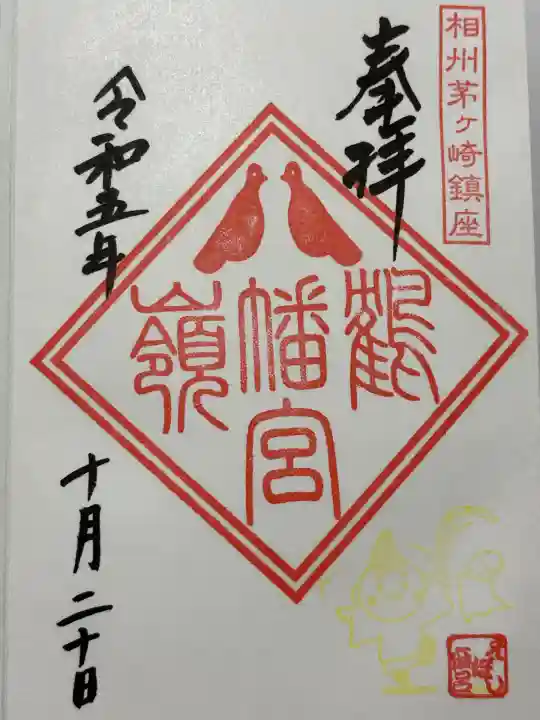 相州茅ヶ崎鎮座
奉拝
鶴嶺
幡宮
令和五年
十月二十日